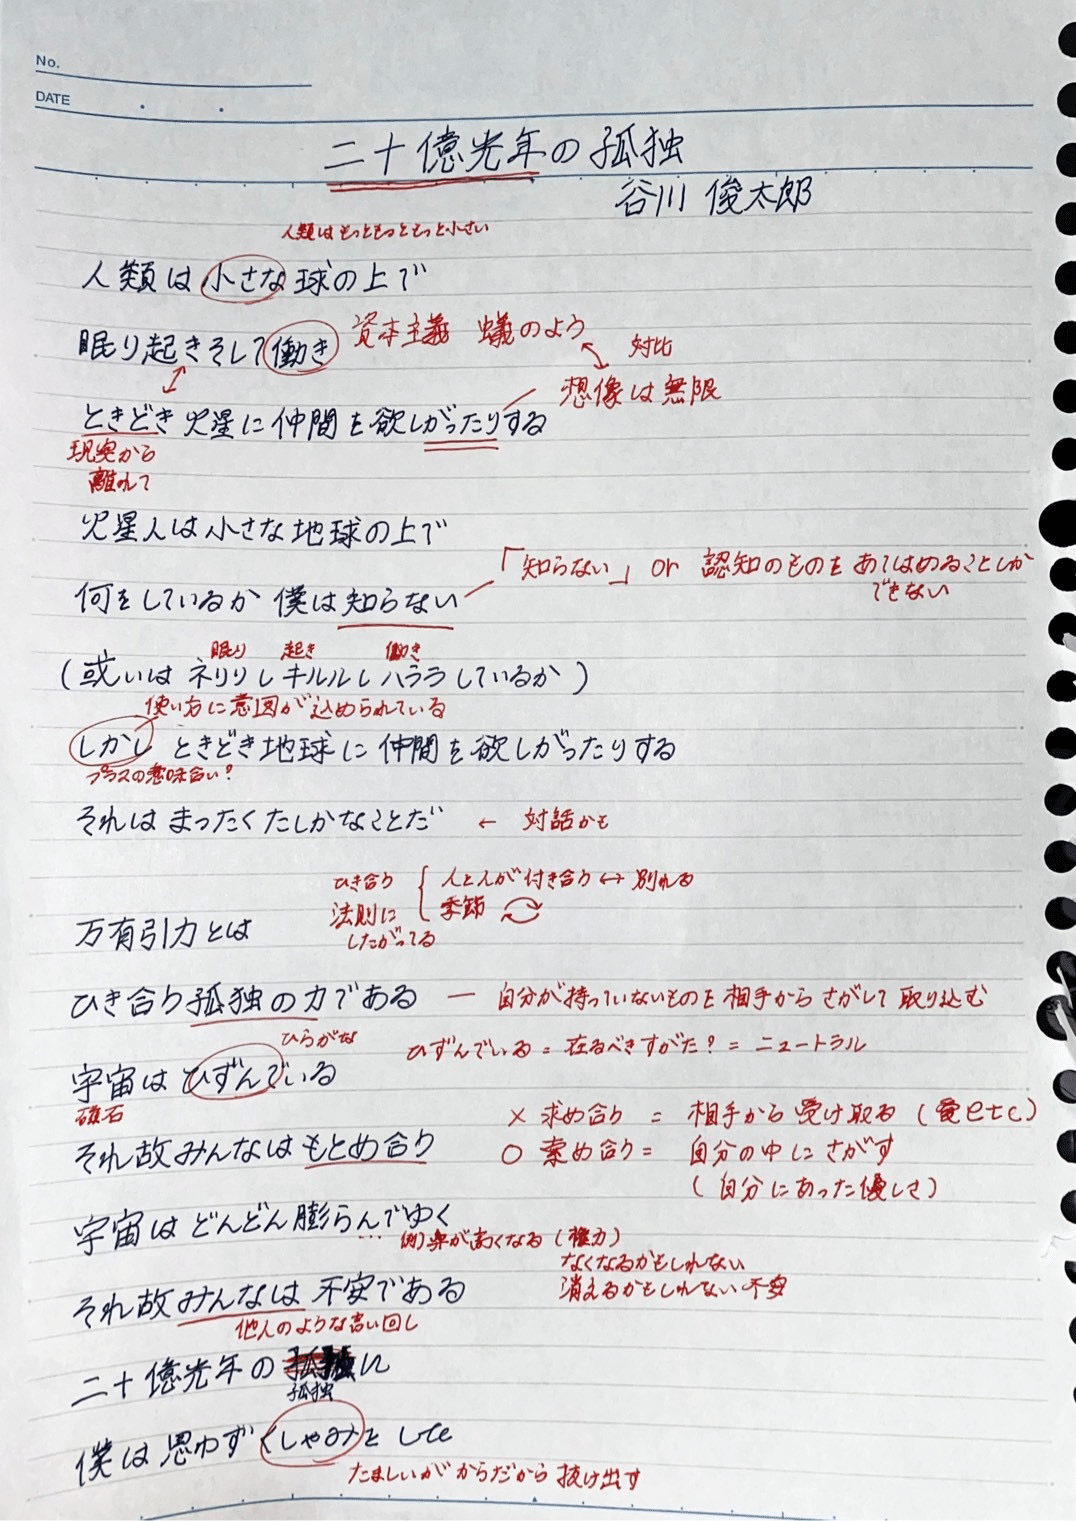 No.
DATE
二十億光年の孤独
谷川 俊太郎
人類はもっともっともっと小さい
人類は小さな球の上で
眠り起きそして働き 資本主義 蟻のよう
対比
想像は無限
ときどき火星に仲間を欲しがったりする
現実から
離れて
火星人は小さな地球の上で
「知らない」 or 認知のものをあてはめることしか
できない
何をしているか 僕は知らない
眠り 起き 働き
(或いは ネリリし キルルし ハララしているか)
使い方に意図が込められている
しかし ときどき地球に仲間を欲しがったりする
プラスの意味合い?
それはまったくたしかなことだ ← 対話かも
ひき合り 人と人が付き合り ↔ 別れる
法則に 季節
したがってる
万有引力とは
ひき合り孤独の力である — 自分が持っていないものを相手からさがして取り込む
ひらがな ひずんでいる = 在るべきすがた? = ニュートラル
宇宙はひずんでいる
磁石
× 求め合り = 相手から受け取る (愛etc)
それ故みんなはもとめ合り ○ 索め合り = 自分の中にさがす
(自分にあった優しさ)
宇宙はどんどん膨らんでゆく
例)が高くなる (権力)
なくなるかもしれない
それ故みんなは不安である 消えるかもしれない不安
他人のような言い回し
二十億光年の孤独に
孤独
僕は思わずくしゃみをした
たましいがからだから抜け出す